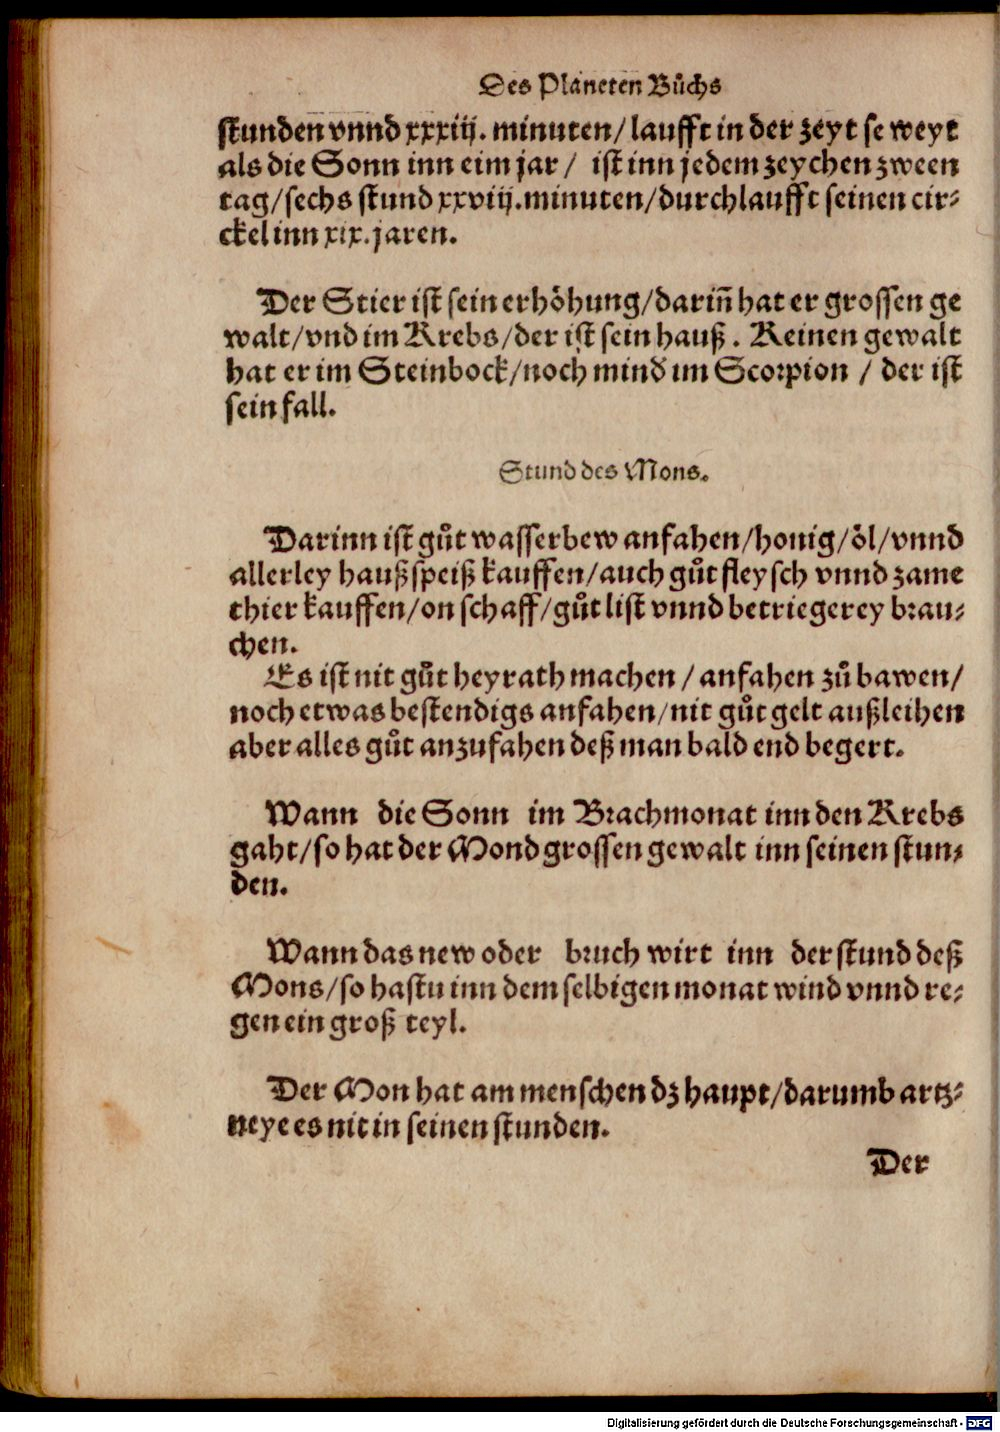 Des Planeten Bůchs
stunden vnnd xxxiij. minuten/ laufft in der zeyt se weyt
als die Sonn inn eim jar / ist inn jedem zeychen zween
tag/sechs stund xxviij.minuten/durchlaufft seinen cir-
ckel inn xix.jaren.
Der Stier ist sein erhöhung/darin̄ hat er grossen ge
walt/vnd im Krebs/der ist sein hauß. Keinen gewalt
hat er im Steinbock/noch mind im Scorpion / der ist
sein fall.
Stund des Mons.
Darinn ist gůt wasserbew anfahen/honig/öl/vnnd
allerley haußspeiß kauffen/auch gůt fleysch vnnd zame
thier kauffen/on schaff/gůt list vnnd betriegerey brau-
chen.
Es ist nit gůt heyrath machen / anfahen zů bawen/
noch etwas bestendigs anfahen/nit gůt gelt außleihen
aber alles gůt anzufahen deß man bald end begert.
Wann die Sonn im Brachmonat inn den Krebs
gaht/so hat der Mond grossen gewalt inn seinen stun-
den.
Wann das new oder bruch wirt inn der stund deß
Mons/so hastu inn dem selbigen monat wind vnnd re-
gen ein groß teyl.
Der Mon hat am menschen dz haupt/darumb artz-
neye es nit in seinen stunden.
Der
Digitalisierung gefördert durch die Deutsche Forschungsgemeinschaft - DFG